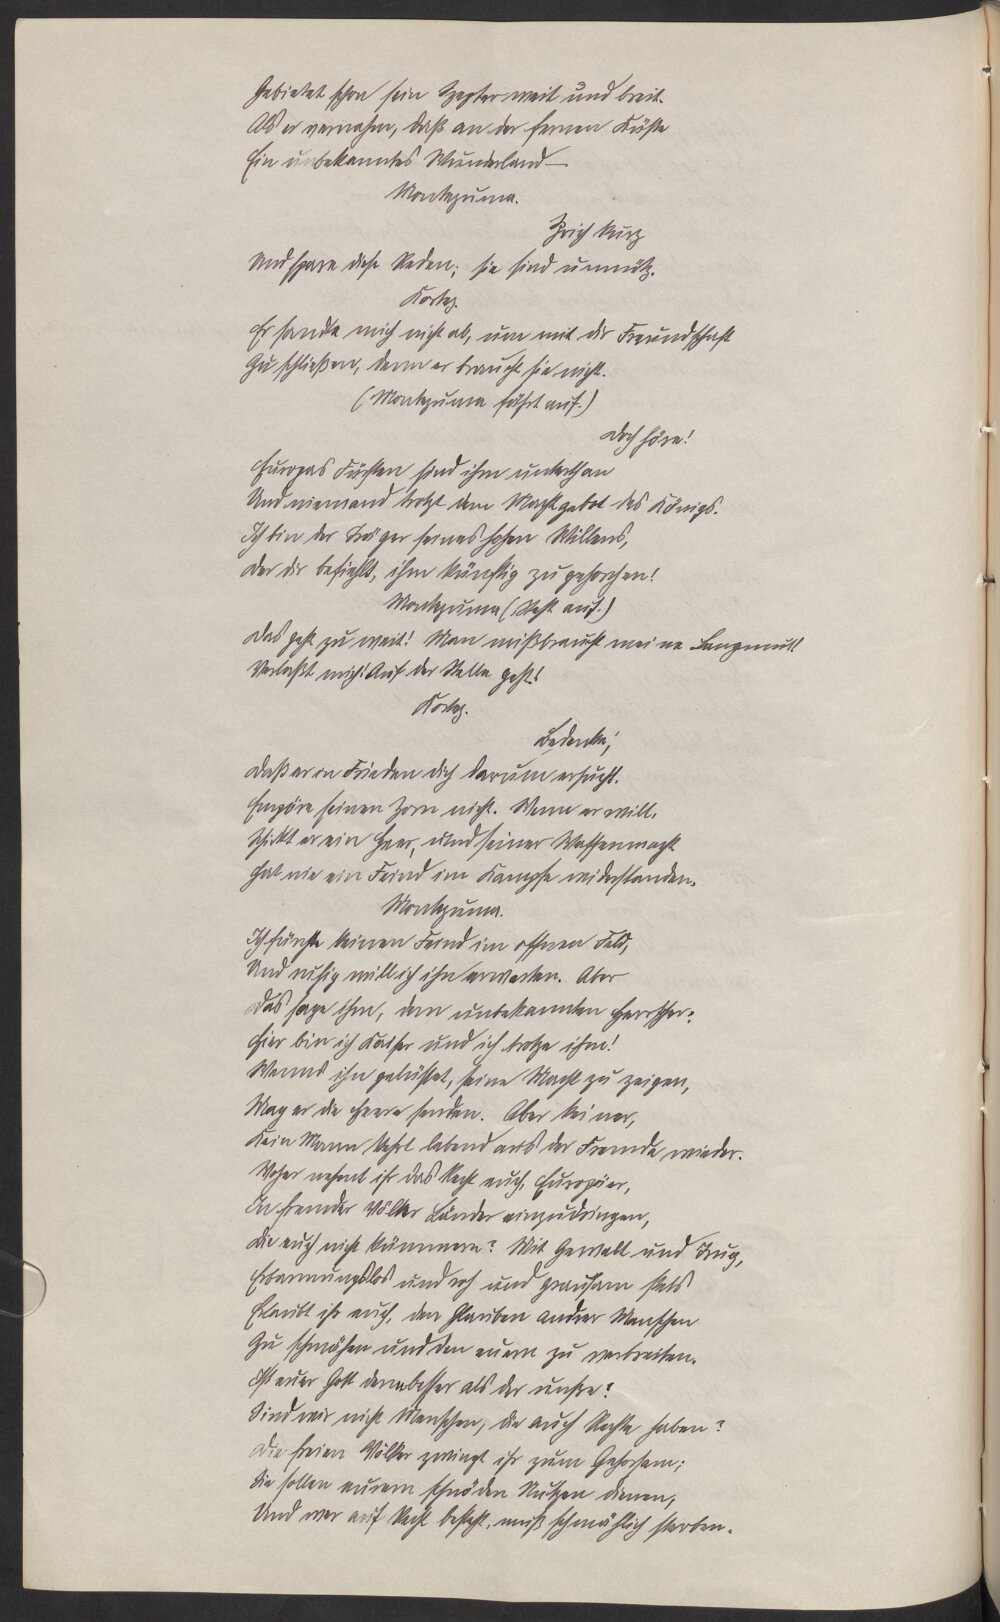 Gebietet schon sein Zepter weit und breit.
Als er vernahm, daß an der fernen Küste
Ein unbekanntes Wunderland—
Montezuma.
Sprich kurz
Und spare diese Reden; sie sind unnütz.
Kortez.
Er sandte mich nicht ab, um mit dir Freundschaft
Zu schließen, denn er braucht sie nicht.
(Montezuma fährt auf.)
Doch höre!
Europas Fürsten sind ihm unterthan
Und niemand trotzt dem Machtgebot des Königs.
Ich bin der Träger seines hohen Willens,
Der dir befiehlt, ihm künftig zu gehorchen!
Montezuma (steht auf.)
Das geht zu weit! Man mißbraucht meine Langmut!
Verlaßt mich! Auf der Stelle geht!
Kortez.
Bedenke,
Daß er in Frieden dich darum ersucht.
Empöre seinen Zorn nicht. Wenn er will,
Schickt er ein Heer, und seiner Waffenmacht
Hat nie ein Feind im Kampfe widerstanden.
Montezuma.
Ich fürchte keinen Feind im offnen Feld,
Und ruhig will ich ihn erwarten. Aber
Das sage ihm, dem unbekannten Herrscher:
Hier bin ich Kaiser und ich trotze ihm!
Wenns ihn gelüstet, seine Macht zu zeigen,
Mag er die Heere senden. Aber keiner,
Kein Mann kehrt lebend aus der Fremde wieder.
Woher nehmt ihr das Recht euch, Europäer,
In fremder Völker Länder einzudringen,
Die euch nicht kümmern? Mit Gewalt und Trug,
Erbarmungslos und roh und grausam stets
Erlaubt ihr euch, den Glauben andrer Menschen
Zu schmähen und den euern zu verbreiten.
Ist euer Gott denn besser als der unsre?
Sind wir nicht Menschen, die auch Rechte haben?
Die freien Völker zwingt ihr zum Gehorsam;
Sie sollen eurem schnöden Nutzen dienen,
Und wer auf Recht besteht, muß schmählich sterben.